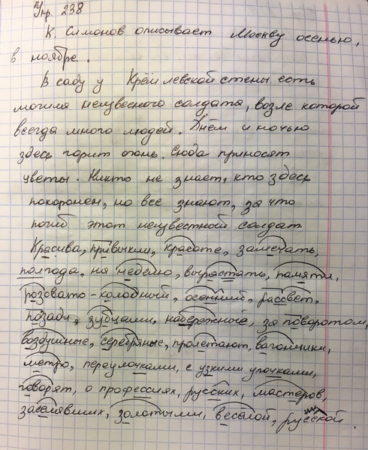 Упр. 238
К. Симонов описывает Москву осенью,
в ноябре.
В саду у Кремлевской стены есть
могила неизвесного солдата, возле которой
всегда много людей. Днём и ночью
здесь горит огонь. Сюда приносят
цветы. Никто не знает, кто здесь
похоронен, но все знают, за что
погиб этот неизвестной солдат
Красива, привыкли, красоте, замечать,
полгода, на неделю, вырастать, памяти,
розовато-холодный, осенний, рассвет,
позади, зубцами, набережные, за поворотом,
воздушные, серебряные, пролетают, вагончики,
метро, переулочками, с узкими улочками,
говорят, о профессиях, русских, мастеров,
золотыми, весёлой, русской.